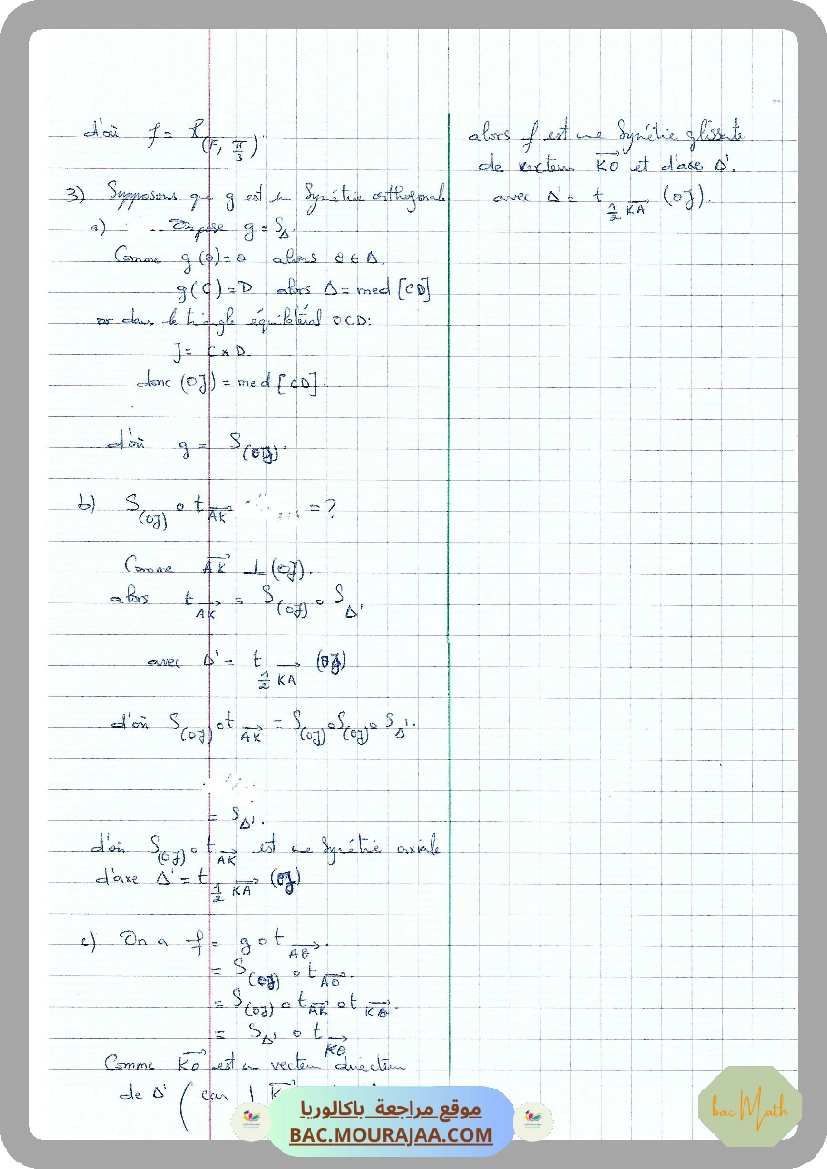 d'où f = R(F, π/3).
3) Supposons que g est une Symétrie orthogonale
a) : ... On pose g = S_Δ.
Comme g(O) = O alors O ∈ Δ.
g(C) = D alors Δ = med [CD]
or dans le triangle équilatéral OCD:
J = C * D.
donc (OJ) = med [CD].
d'où g = S_(OJ).
b) S_(OJ) o t_AK⃗ = ?
Comme AK⃗ ⊥ (OJ).
alors t_AK⃗ = S_(OJ) o S_Δ'
avec Δ' = t_½KA⃗ (OJ)
d'où S_(OJ) o t_AK⃗ = S_(OJ) o S_(OJ) o S_Δ'.
= S_Δ'.
d'où S_(OJ) o t_AK⃗ est une Symétrie axiale
d'axe Δ' = t_½KA⃗ (OJ)
c) On a f = g o t_AO⃗.
= S_(OJ) o t_AO⃗.
= S_(OJ) o t_AK⃗ o t_KO⃗.
= S_Δ' o t_KO⃗
Comme KO⃗ est un vecteur directeur
de Δ' ( car
alors f est une Symétrie glissante
de vecteur KO⃗ et d'axe Δ'.
avec Δ = t_½KA⃗ (OJ).
موقع مراجعة باكالوريا
BAC.MOURAJAA.COM
bac Math